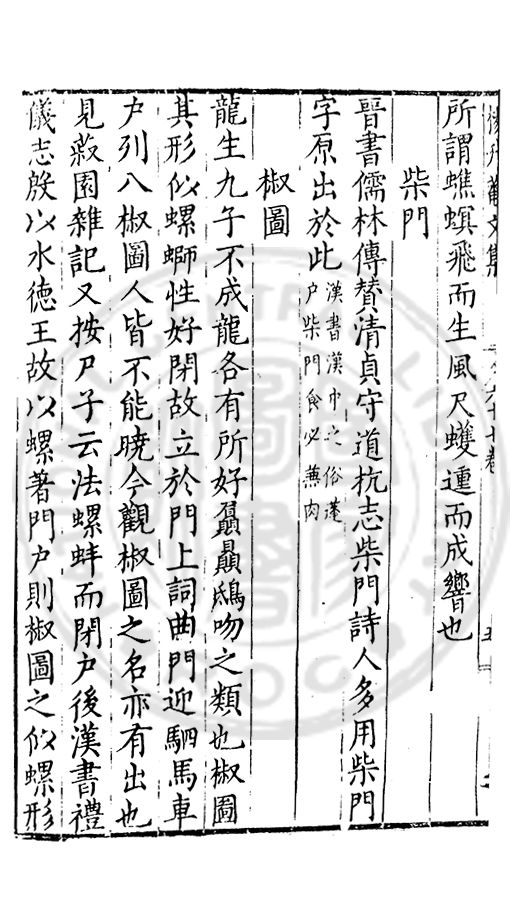 所謂蟭螟飛而生風尺蠖運而成響也
柴門
晉書儒林傳贊清貞守道抗志柴門詩人多用柴門
字原出於此漢書漢中之俗蓬
戶柴門食必蕪肉
椒圖
龍生九子不成龍各有所好贔屭鴟吻之類也椒圖
其形似螺螄性好閉故立於門上詞曲門迎駟馬車
戶列八椒圖人皆不能曉今觀椒圖之名亦有出也
見菽園雜記又按尸子云法螺蚌而閉戶後漢書禮
儀志殷以水德王故以螺著門戶則椒圖之似螺形